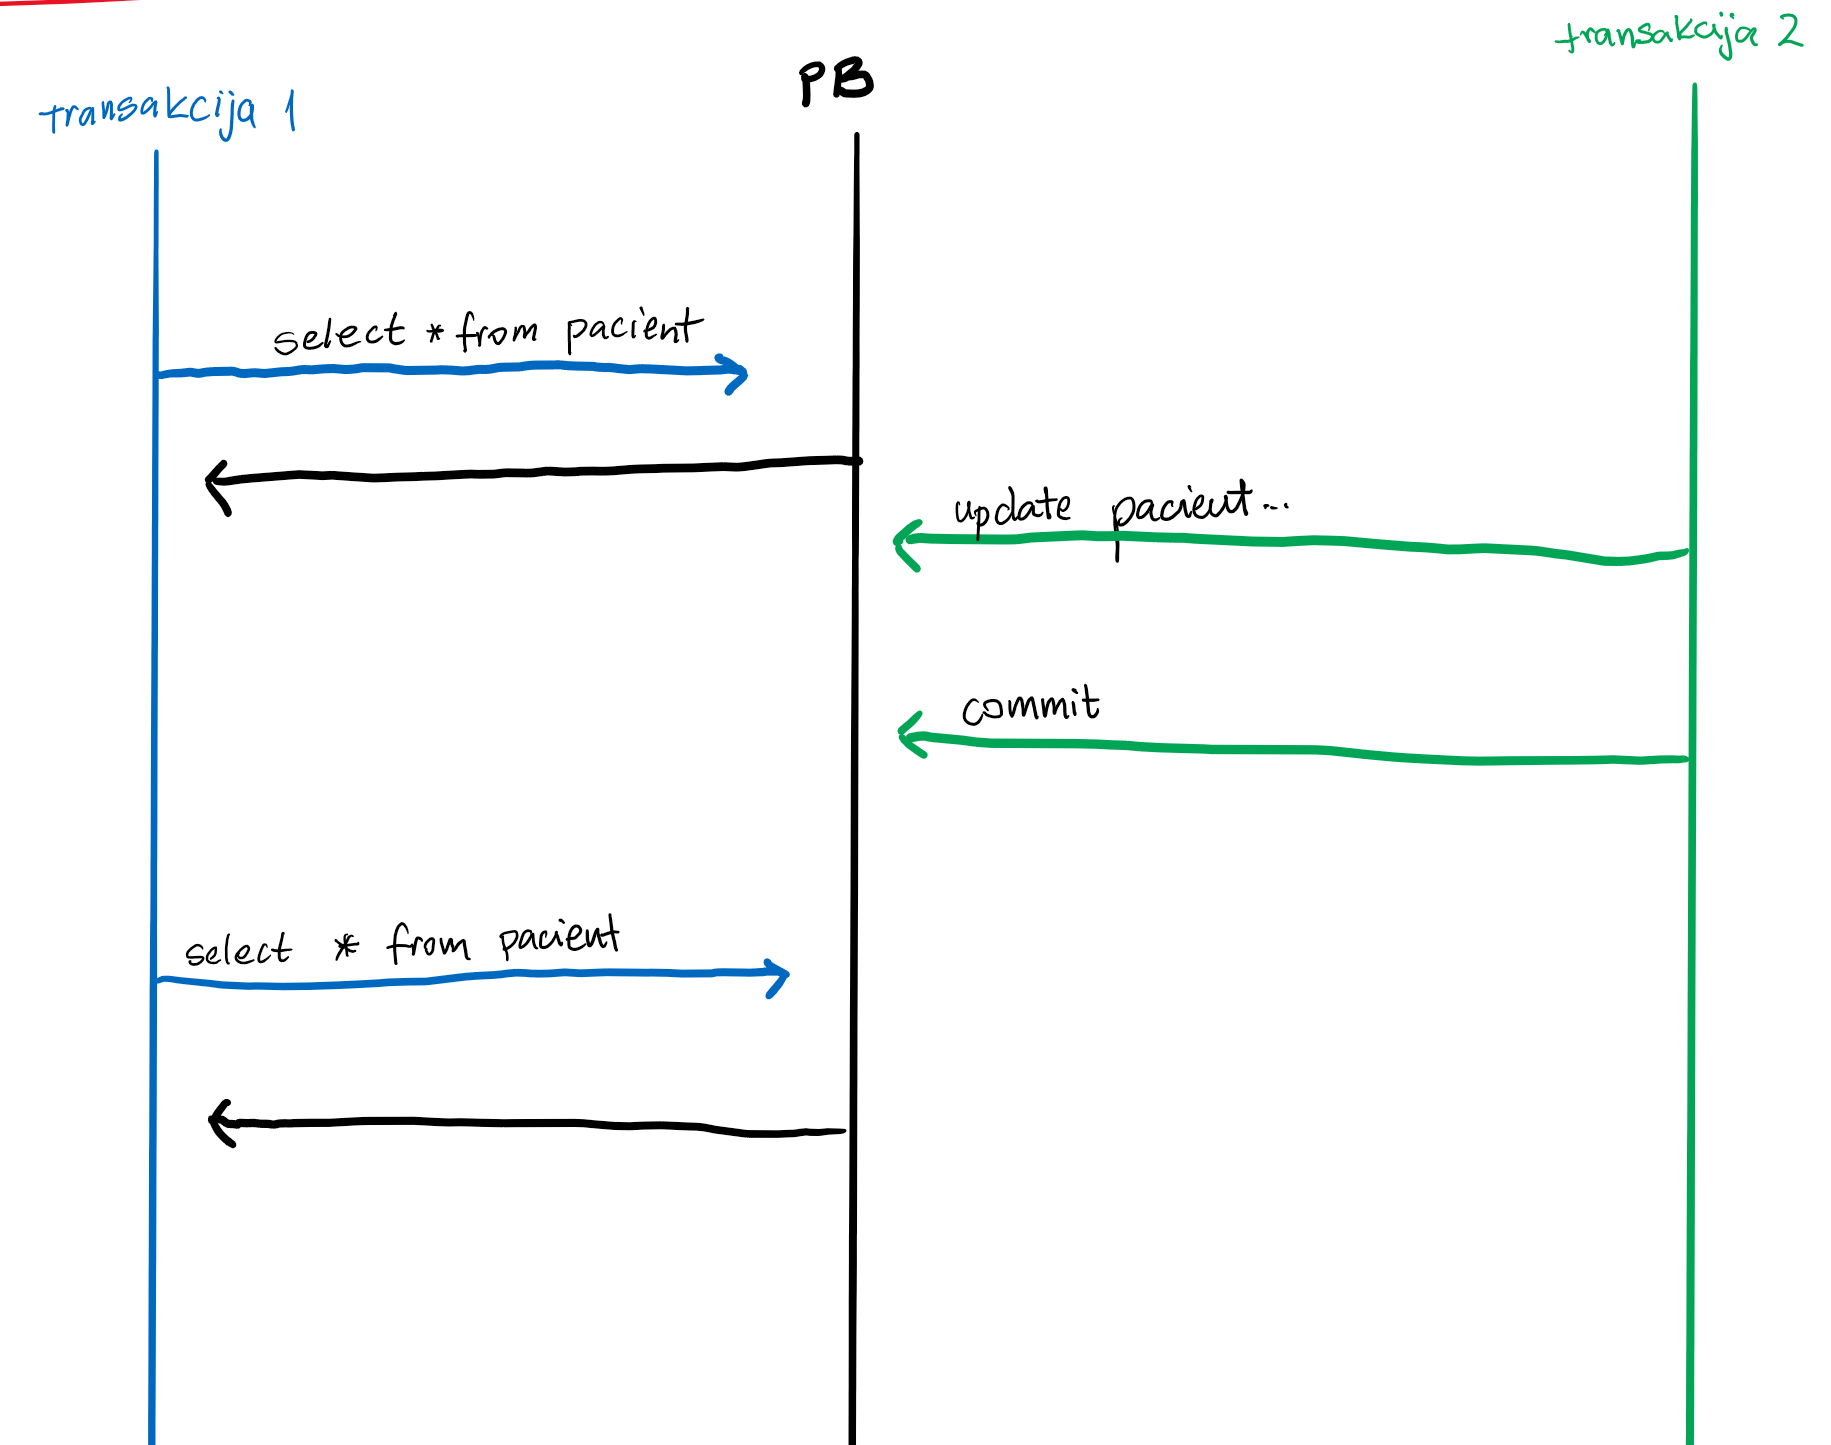 transakcija 2
PB
transakcija 1
select * from pacient
update pacient...
commit
select * from pacient